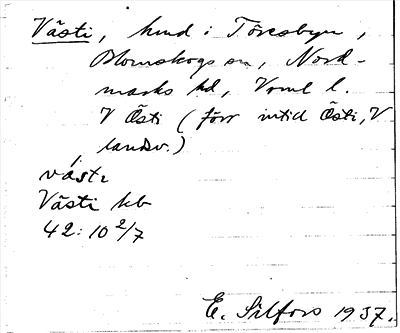 Västi, hmd i Töcksbyn,
Blomskogs sn, Nord-
marks hd, Vrml l.
V Östi (förr intill Östi, V
landsv.)
vást​ɩ
Västi kb
42:10 2/7
E. Silfors 1937.